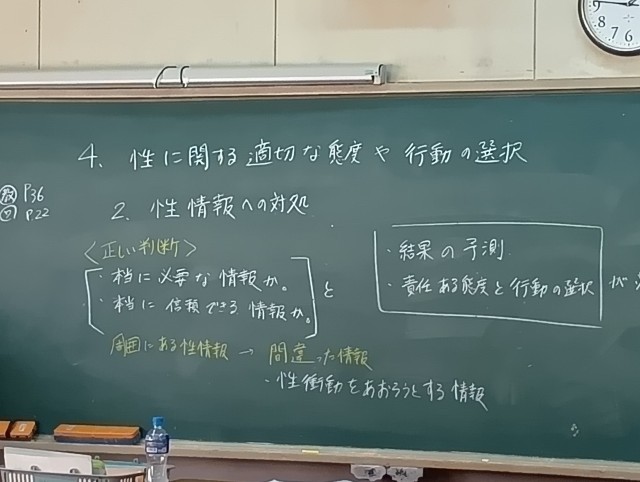 4、性に関する適切な態度や行動の選択
教 P36
P22
2、性情報への対処
<正しい判断>
・本当に必要な情報か。
・本当に信頼できる情報か。
と
・結果の予測
・責任ある態度と行動の選択
が
周囲にある性情報 → 間違った情報
・性衝動をあおろうとする情報
9
8
7
6
5